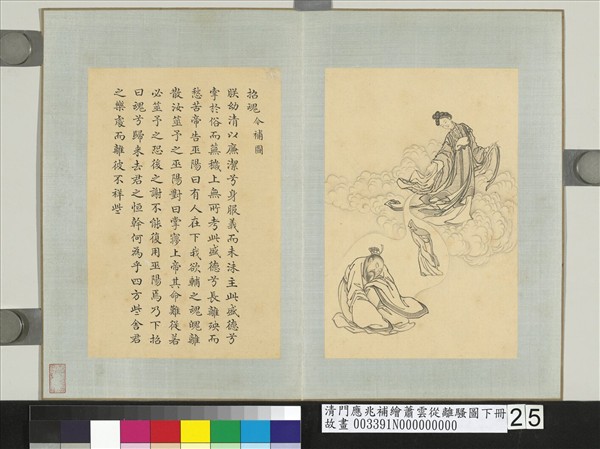 招魂 今補圖
朕幼清以廉潔兮身服義而未沬主此盛德兮
牽於俗而蕪穢上無所考此盛德兮長離殃而
愁苦帝告巫陽曰有人在下我欲輔之魂魄離
散汝筮予之巫陽對曰掌夢上帝其命難從若
必筮予之恐後之謝不能復用巫陽焉乃下招
曰魂兮歸來去君之恒幹何為乎四方些舍君
之樂處而離彼不祥些
清門應兆補繪蕭雲從離騷圖下冊
故畫 003391N000000000
25